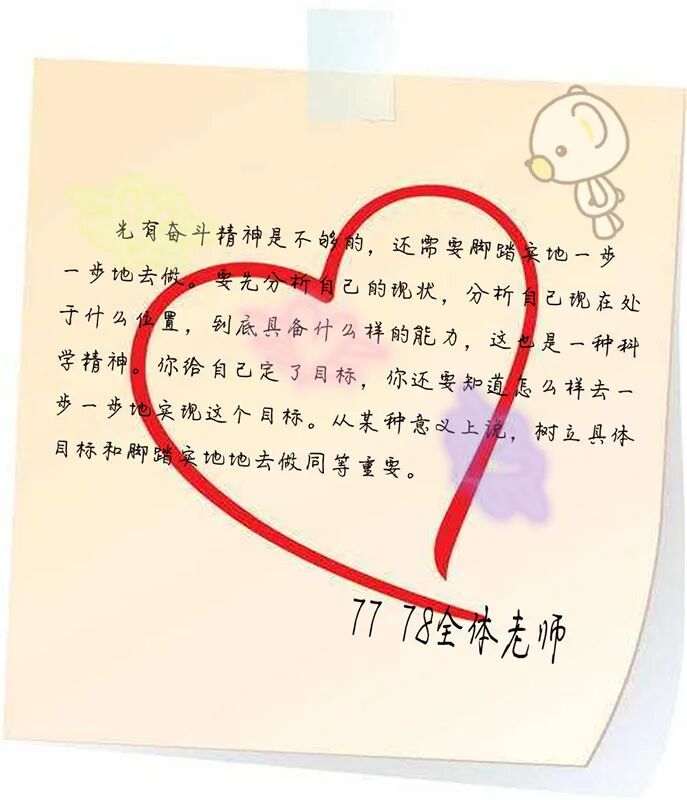 光有奋斗精神是不够的，还需要脚踏实地一步
一步地去做。要先分析自己的现状，分析自己现在处
于什么位置，到底具备什么样的能力，这也是一种科
学精神。你给自己定了目标，你还要知道怎么样去一
步一步地实现这个目标。从某种意义上说，树立具体
目标和脚踏实地地去做同等重要。
77 78全体老师